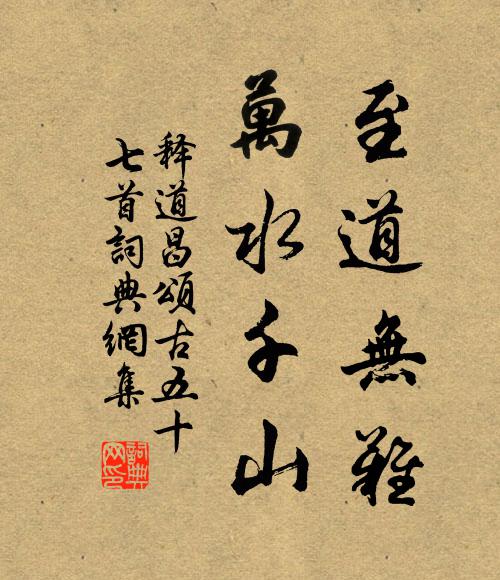 至道無難
萬水千山
释道昌頌古五十
七首詞典網集
詞典
网印